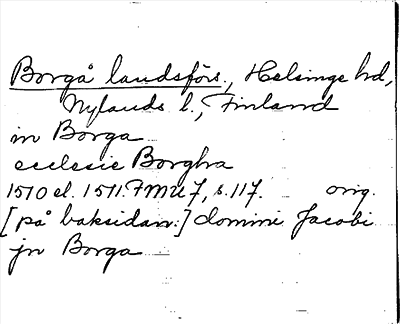 Borgå landsförs., Helsinge hd,
Nylands l., Finland
in Borga
ecclesie Borgha
1510 el. 1511. FMU 7, s. 117. orig.
[på baksidan:] domini Jacobi
jn Borga